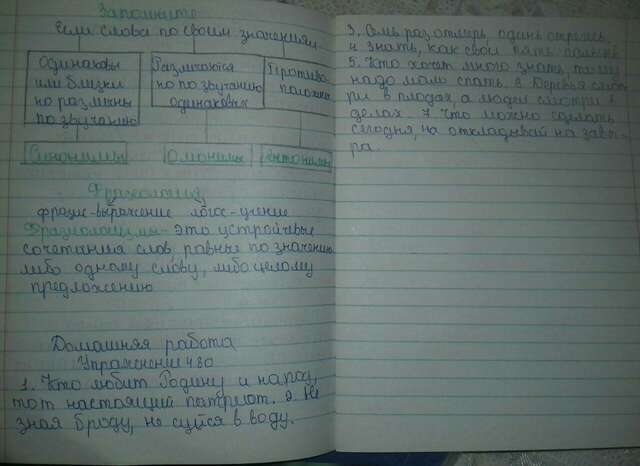 Запомните
Если слова по своим значениям
Одинаковы
или близки
но различны
по звучанию
Различаются
но по звучанию
одинаковых
Противо-
положны
Синонимы
Омонимы
Антонимы
Фразеология
фразис-выражение логос-учение
Фразиологизмы-это устройчевые
сочетания слов, равные по значению
либо одному слову, либо целому
предложению
Домашняя работа
Упражнение 480
1. Кто любит Родину и народ,
тот настоящий патриот. 2. Не
зная броду, не суйся в воду.
3. Семь раз отмерь, один отрежь
4 Знать, как свои пять пальцев
5. Кто хочет много знать, тому
надо мало спать. 6 Деревья смот
ри в плодах, а людей смотри в
делах. 7 Что можно сделать
сегодня, на откладывай на завт
ра.